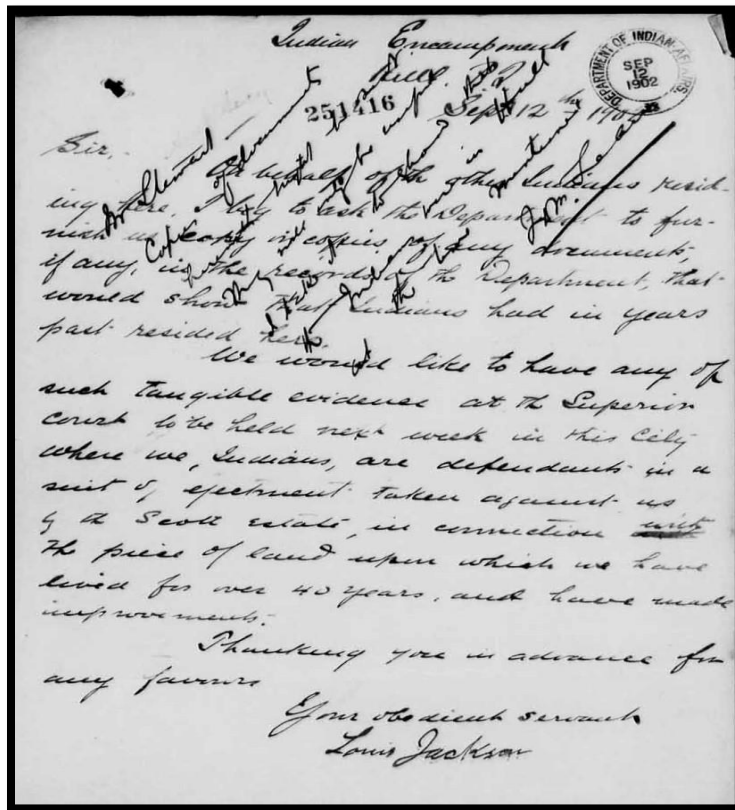 Indian Encampment
Hull, P.Q.
DEPARTMENT OF INDIAN AFFAIRS
SEP
12
1902
251416
Sept 12th 1902
Sir,
On behalf of the other Indians resid-
ing here, I beg to ask the Department to fur-
nish us copy or copies of any document,
if any, in the records of the Department, that
would show that Indians had in years
past resided here.
We would like to have any of
such tangible evidence at th Superior
court to be held next week in this City
where we, Indians, are defendants in a
suit of ejectment taken against us
by th Scott Estate, in connection with
the piece of land upon which we have
lived for over 40 years, and have made
improvements.
Thanking you in advance for
any favours
Your obedient servant
Louis Jackson
Mr Stewart
Copies of documents